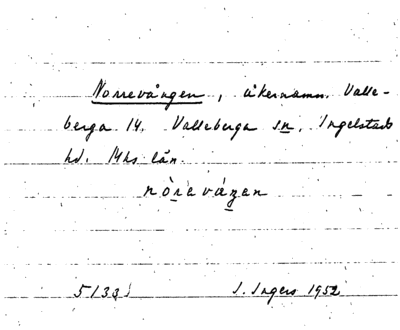 Norrevången, åkernamn. Valle-
berga 14. Valleberga sn, Ingelstads
hd. Mhs län.
nòrevàŋen
5133 I. Ingers 1952